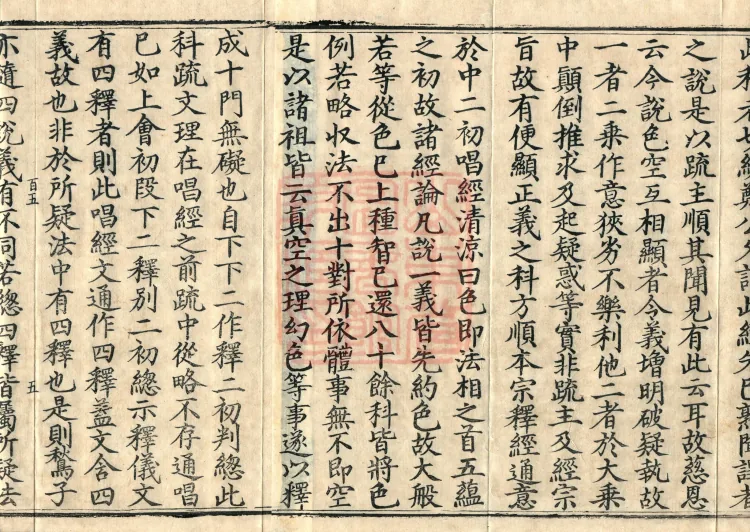 之說是以疏主順其聞見有此云耳故慈恩
云今說色空互相顯者令義增明破疑執故
一者二乘作意狹劣不樂利他二者於大乘
中顛倒推求及起疑惑等實非疏主及經宗
旨故有便顯正義之科方順本宗釋經通意
於中二初唱經清涼曰色即法相之首五蘊
之初故諸經論凡說一義皆先約色故大般
若等從色已上種智已還八十餘科皆將色
例若略収法不出十對所依體事無不即空
是以諸祖皆云真空之理幻色等事遂以釋
成十門無礙也自下下二作釋二初判總此
科疏文理在唱經之前疏中從略不存通唱
已如上會初段下二釋別二初總示釋儀文
有四釋者則此唱經文通作四釋蓋文含四
義故也非於所疑法中有四釋也是則鶖子
百五
五
亦遺四說義有不同若總四釋皆屬所疑法